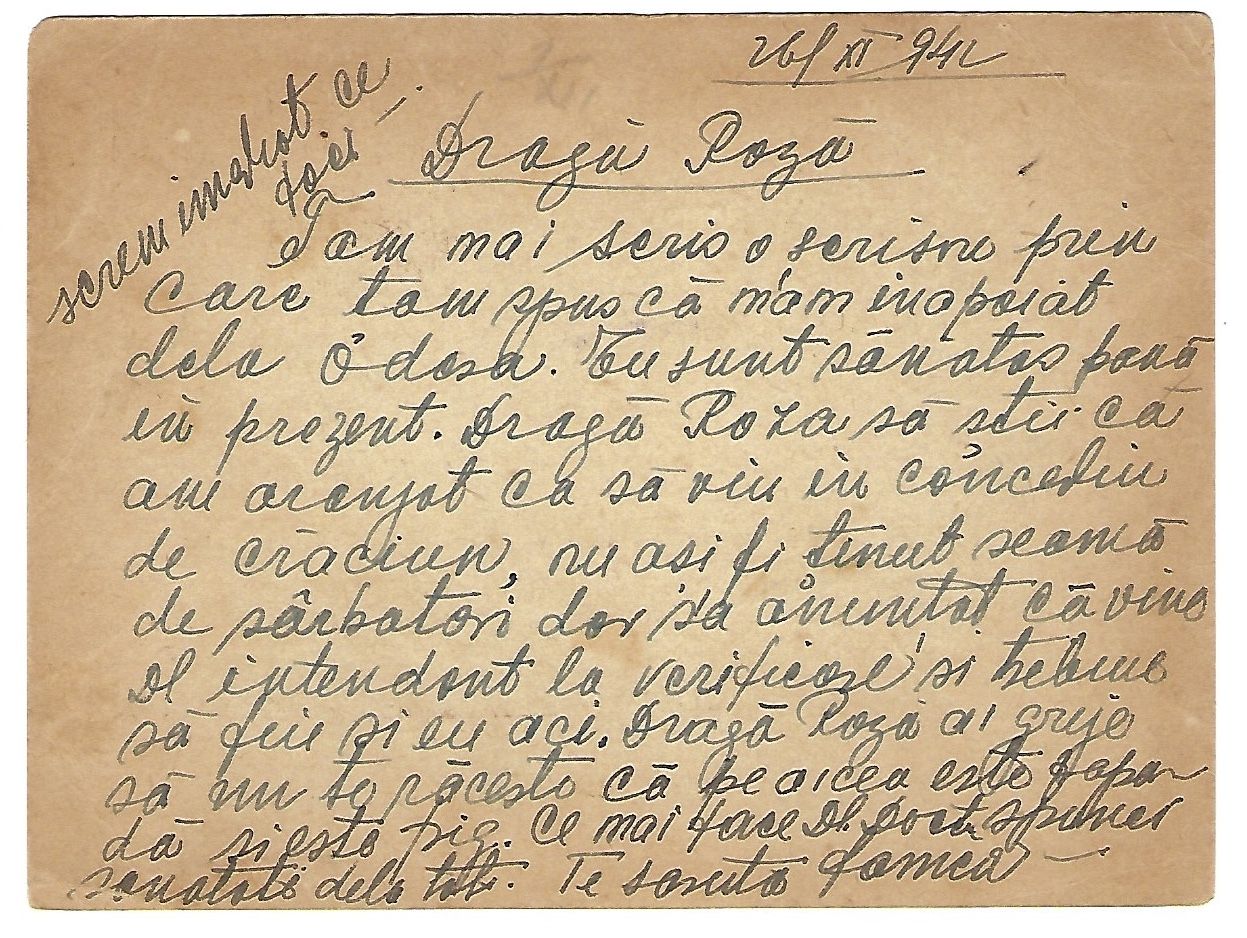 26/XI 942
Dragă Roză
Ťam mai scris o scrisore prin
care tam spus că m'am inapoiat
dela Odesa. Eu sunt sănatos pană
in prezent. Dragă Roza să stii că
am aranjat ca să viu in concediu
de crăciun, nu asi fi tinut seamă
de sărbatori dar s'a anuntat că vine
Dl intendent la verificare si trebuie
să fiu si eu aci. Dragă Roză ai grije
să nu te răcesto că pe aicea este zapa
dă si este frig. Ce mai face Dl Doct. spunei
sanatate dela toti. Te saruta
screm imediat ce
faci